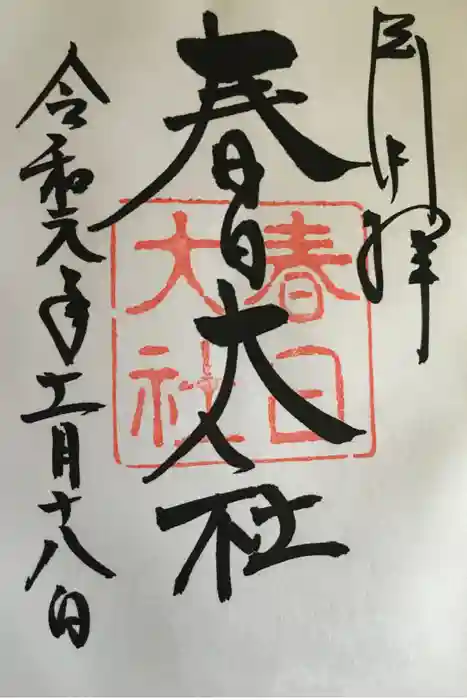 拝
春日大社
春日
大社
令和元年五月十八日